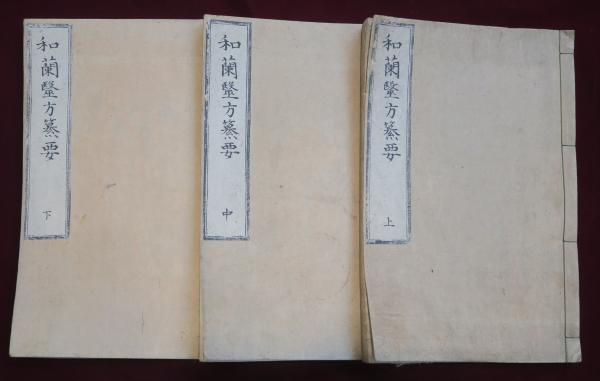 和蘭毉方纂要
上
和蘭毉方纂要
中
和蘭毉方纂要
下